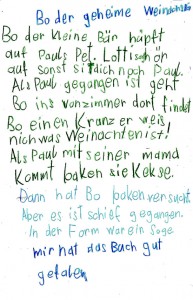 Bo der geheime Weinachts
Bo der kleine Bär hüpft
auf Pauls Pet. Lotti
auf sonst si dich noch Paul.
Als Paul gegangen ist geht
Bo ins vonzimmer dort findet
Bo einen Kranz er weis
nich was Weinachten ist!
Als Paul mit seiner mama
Kommt baken sie Kekse.
Dann hat Bo baken versucht
Aber es ist schief gegangen.
In der Form war ein Soge
mir hat das Bach gut
gefalen